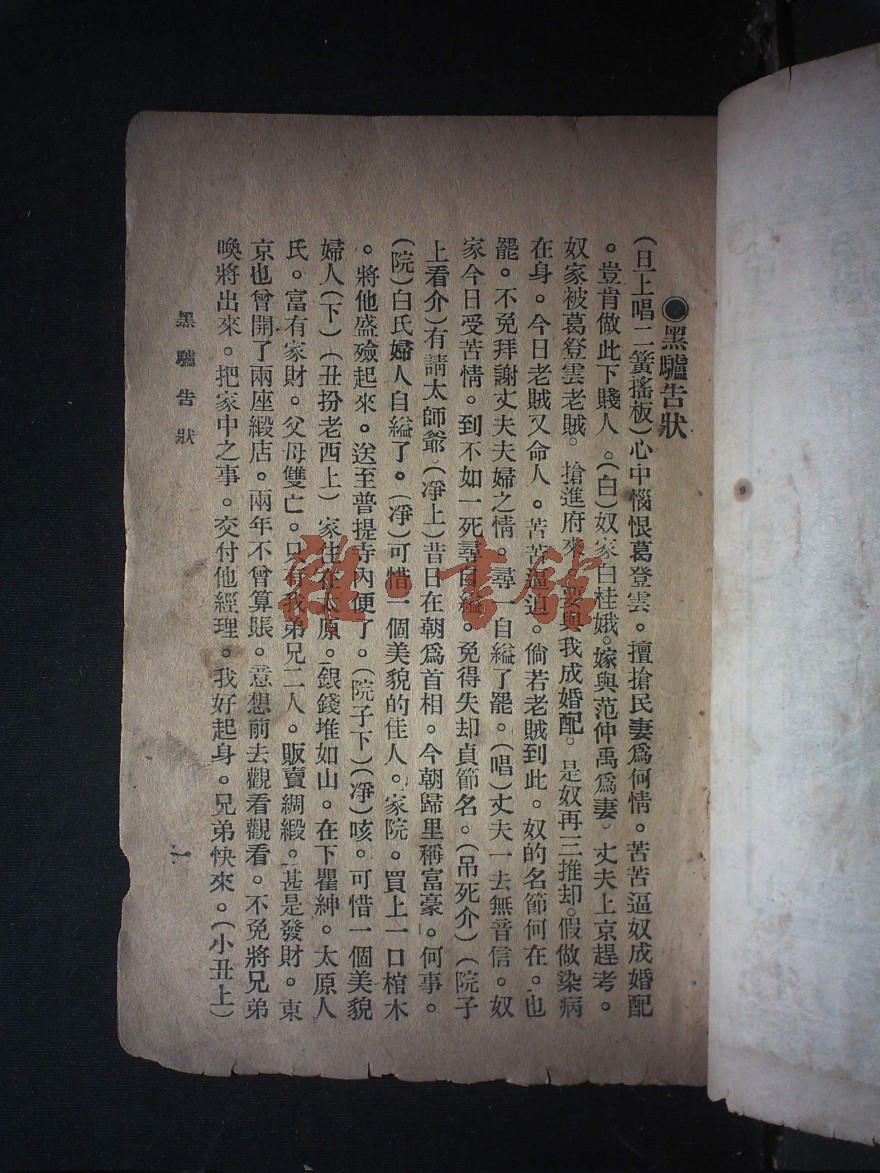 ●黑驢告狀
(旦上唱二簧搖板)心中惱恨葛登雲。擅搶民妻爲何情。苦苦逼奴成婚配
。豈肯做此下賤人。(白)奴家白桂娥。嫁與范仲禹爲妻。丈夫上京趕考。
奴家被葛登雲老賊。搶進府來。要與我成婚配。是奴再三推却。假做染病
在身。今日老賊又命人。苦苦逼迫。倘若老賊到此。奴的名節何在。也
罷。不免拜謝丈夫夫婦之情。尋一自縊了罷。(唱)丈夫一去無音信。奴
家今日受苦情。到不如一死尋自縊。免得失却貞節名。(吊死介)(院子
上看介)有請太師爺。(凈上)昔日在朝爲首相。今朝歸里稱富豪。何事。
(院)白氏婦人自縊了。(凈)可惜一個美貌的佳人。家院。買上一口棺木
。將他盛殮起來。送至普提寺內便了。(院子下)(凈)咳。可惜一個美貌
婦人(下)(丑扮老西上)家住在太原。銀錢堆如山。在下瞿紳。太原人
氏。富有家財。父母雙亡。只有我弟兄二人。販賣綢緞。甚是發財。東
京也曾開了兩座緞店。兩年不曾算賬。意想前去觀看觀看。不免將兄弟
喚將出來。把家中之事。交付他經理。我好起身。兄弟快來。(小丑上)
黑驢告狀
一
雜·書館